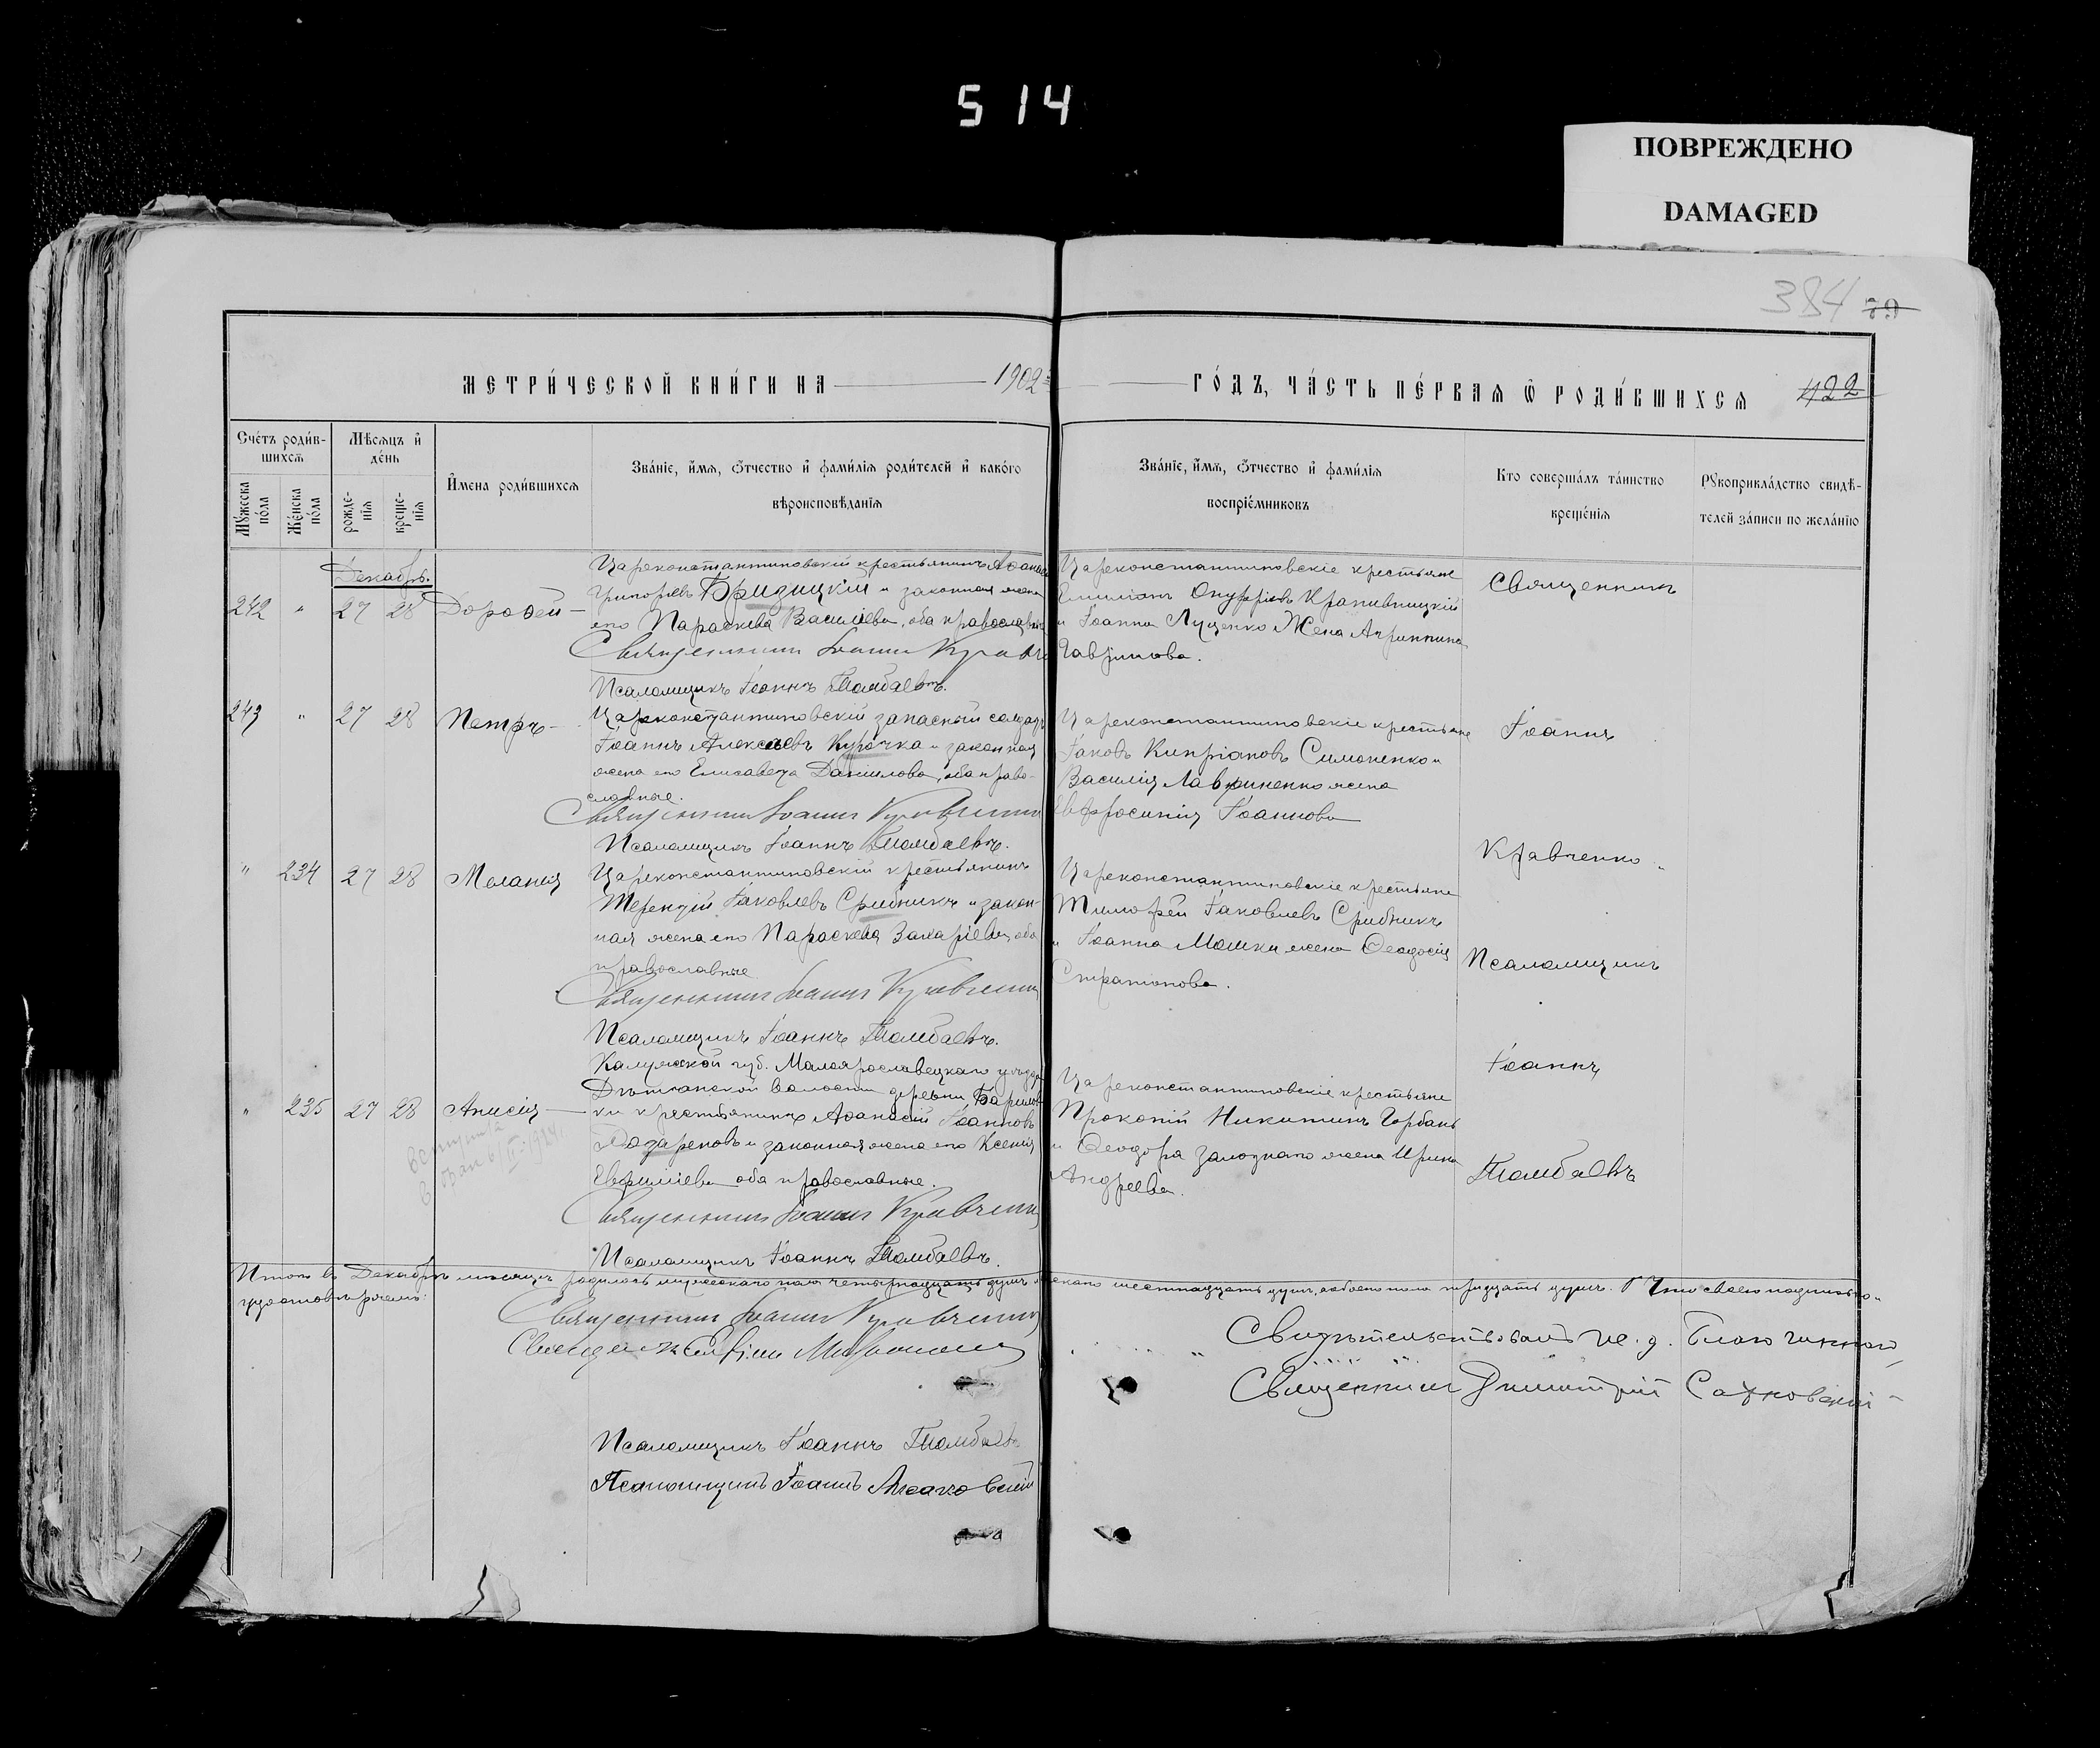 514
ПОВРЕЖДЕНО
DAMAGED
384 79
МЕТРИ́ЧЕСКОЙ КНИ́ГИ НА 1902 ГО́ДЪ, ЧА́СТЬ ПЕ́РВАЯ Ѡ РОДИ́ВШИХСЯ 422
Сче́тъ роди́в-
шихсѧ
Мѣсѧцъ и
де́нь
Му́жеска
по́ла
Же́нска
по́ла
рожде-
нїѧ
креще-
нїѧ
И́мена роди́вшихсѧ
Зва́нїе, и́мѧ, ѻ́тчество и фами́лїѧ роди́телей и како́го
вѣроисповѣ́данїѧ
Зва́нїе, и́мѧ, ѻ́тчество и фами́лїѧ
воспрїе́мниковъ
Кто соверша́лъ та́инство
креще́нїѧ
Рꙋкоприкла́дство свидѣ́-
телей за́писи по жела́нїю
Декабрь.
242 " 27 28 Дороѳей
Цареконстантиновскій крестьянинъ Аѳанасій
Григоріевъ Бридицкій и законная жена
его Параскева Василіева, оба православные
Священникъ Іоаннъ Кравченко
Псаломщикъ Іоаннъ Томбаевъ.
Цареконстантиновскіе крестьяне
Емиліанъ Онуфріевъ Крапивницкій
и Іоанна Луценко жена Агриппина
Гавріилова.
Священникъ
243 " 27 28 Петръ
Цареконстантиновскій запасный солдатъ
Іоаннъ Алексѣевъ Курочка и законная
жена его Елисавета Даниилова, оба право-
славные.
Священникъ Іоаннъ Кравченко
Псаломщикъ Іоаннъ Томбаевъ.
Цареконстантиновскіе крестьяне
Іаковъ Кипріановъ Симоненко и
Василія Лавриненко жена
Евфросинія Іоаннова
Іоаннъ
Кравченко
" 234 27 28 Меланія
Цареконстантиновскій крестьянинъ
Терентій Іаковлевъ Срибникъ и закон-
ная жена его Параскева Захаріева, оба
православные
Священникъ Іоаннъ Кравченко
Псаломщикъ Іоаннъ Томбаевъ.
Цареконстантиновскіе крестьяне
Тимоѳей Іаковлевъ Срибникъ
и Іоанна Мошки жена Ѳеодосія
Стратонова.
Псаломщикъ
Іоаннъ
" 235 27 28 Анисія
Калужской губ. Малоярославецкаго уѣзда
волости деревни
крестьянинъ Аѳанасій Іоанновъ
и законная жена его Ксенія
Евфиміева оба православные.
Священникъ Іоаннъ Кравченко
Псаломщикъ Іоаннъ Томбаевъ.
Цареконстантиновскіе крестьяне
Прокопій Никитинъ Горбань
и Ѳеодора жена Ирина
Андреева.
Томбаевъ
Итого въ Декабрѣ мѣсяцѣ родилось мужескаго пола четырнадцать душъ женскаго шестнадцать душъ, обоего пола тридцать душъ. Что своею подписью
удостовѣряемъ:
Священникъ Іоаннъ Кравченко
Свидѣтельствовалъ и. д. Благочиннаго
Священникъ Димитрій Сатковскій
Псаломщикъ Іоаннъ Томбаевъ
Псаломщикъ Іоаннъ